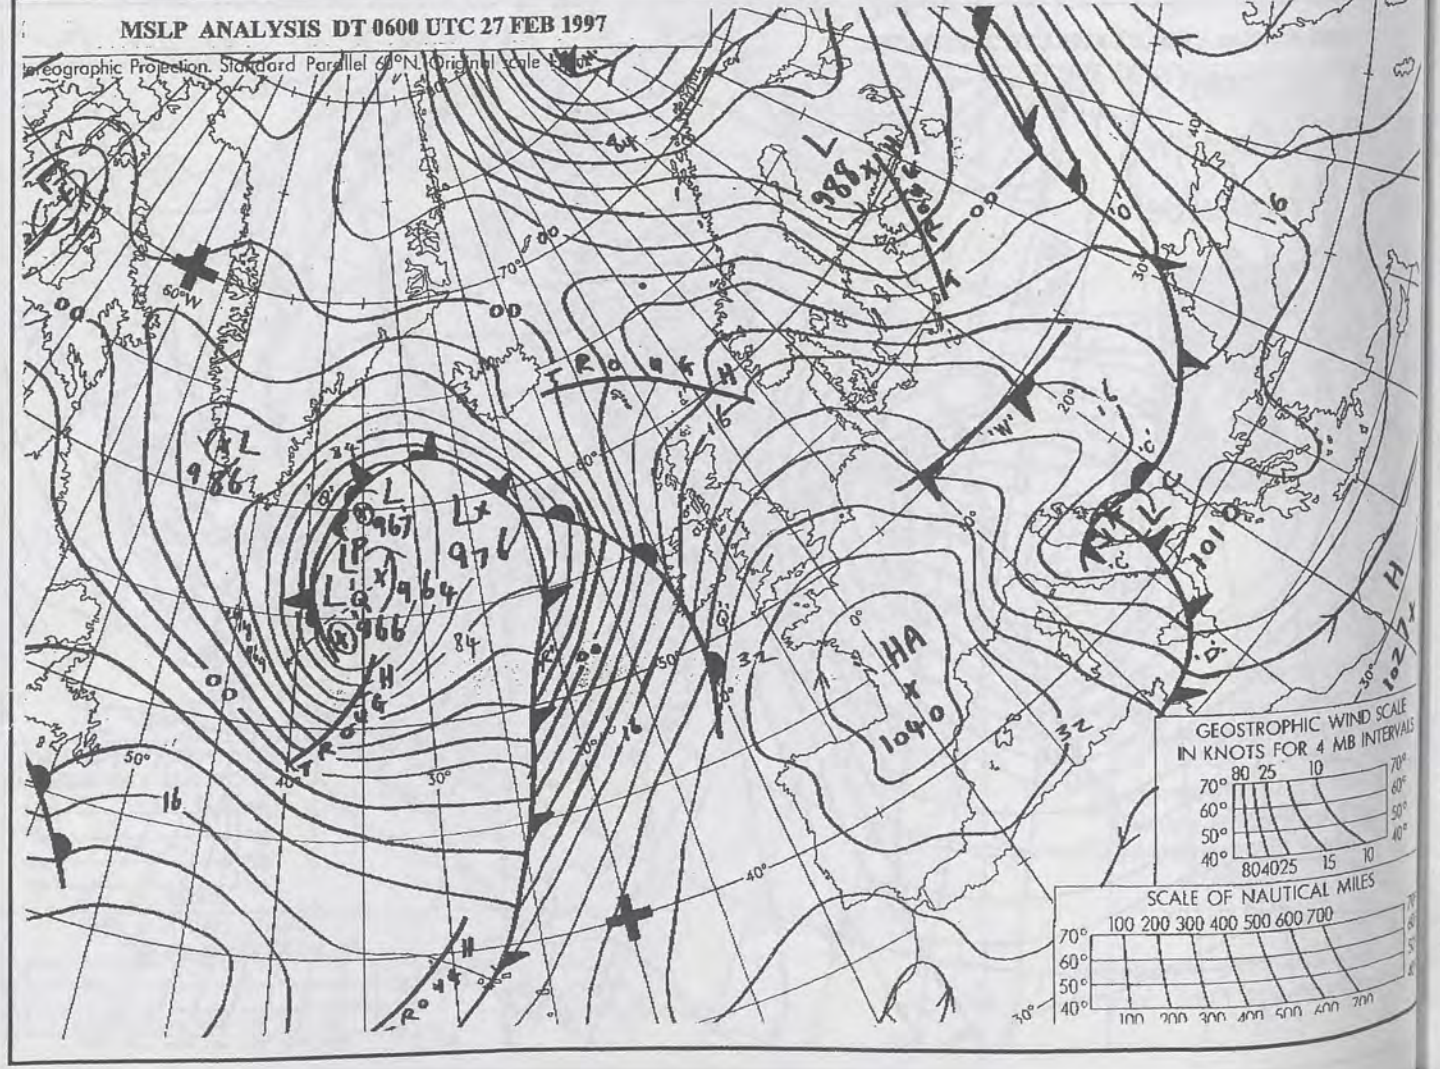 MSLP ANALYSIS DT 0600 UTC 27 FEB 1997
ereographic Projection. Standard Parallel 60°N. Original scale
84
L
988
TROUGH
'O'
40°
-16
30°
00
70°
60°W
00
00
TROUGH
16
'W'
20°
-16
'C'
L
986
84
'Q'
L
967
L
976
LP
964
LQ
966
84
00
TROUGH
60°
50°
'R'
00
'Q'
32
0°
HA
1040
32
L
1010
'C'
'D'
H
1027
30°
50°
40°
30°
16
16
40°
TROUGH
GEOSTROPHIC WIND SCALE
IN KNOTS FOR 4 MB INTERVALS
80 25 10
70° 70°
60° 60°
50° 50°
40° 40°
80 40 25 15 10
SCALE OF NAUTICAL MILES
100 200 300 400 500 600 700
70°
60°
50°
40°
100 200 300 400 500 600 700
30°